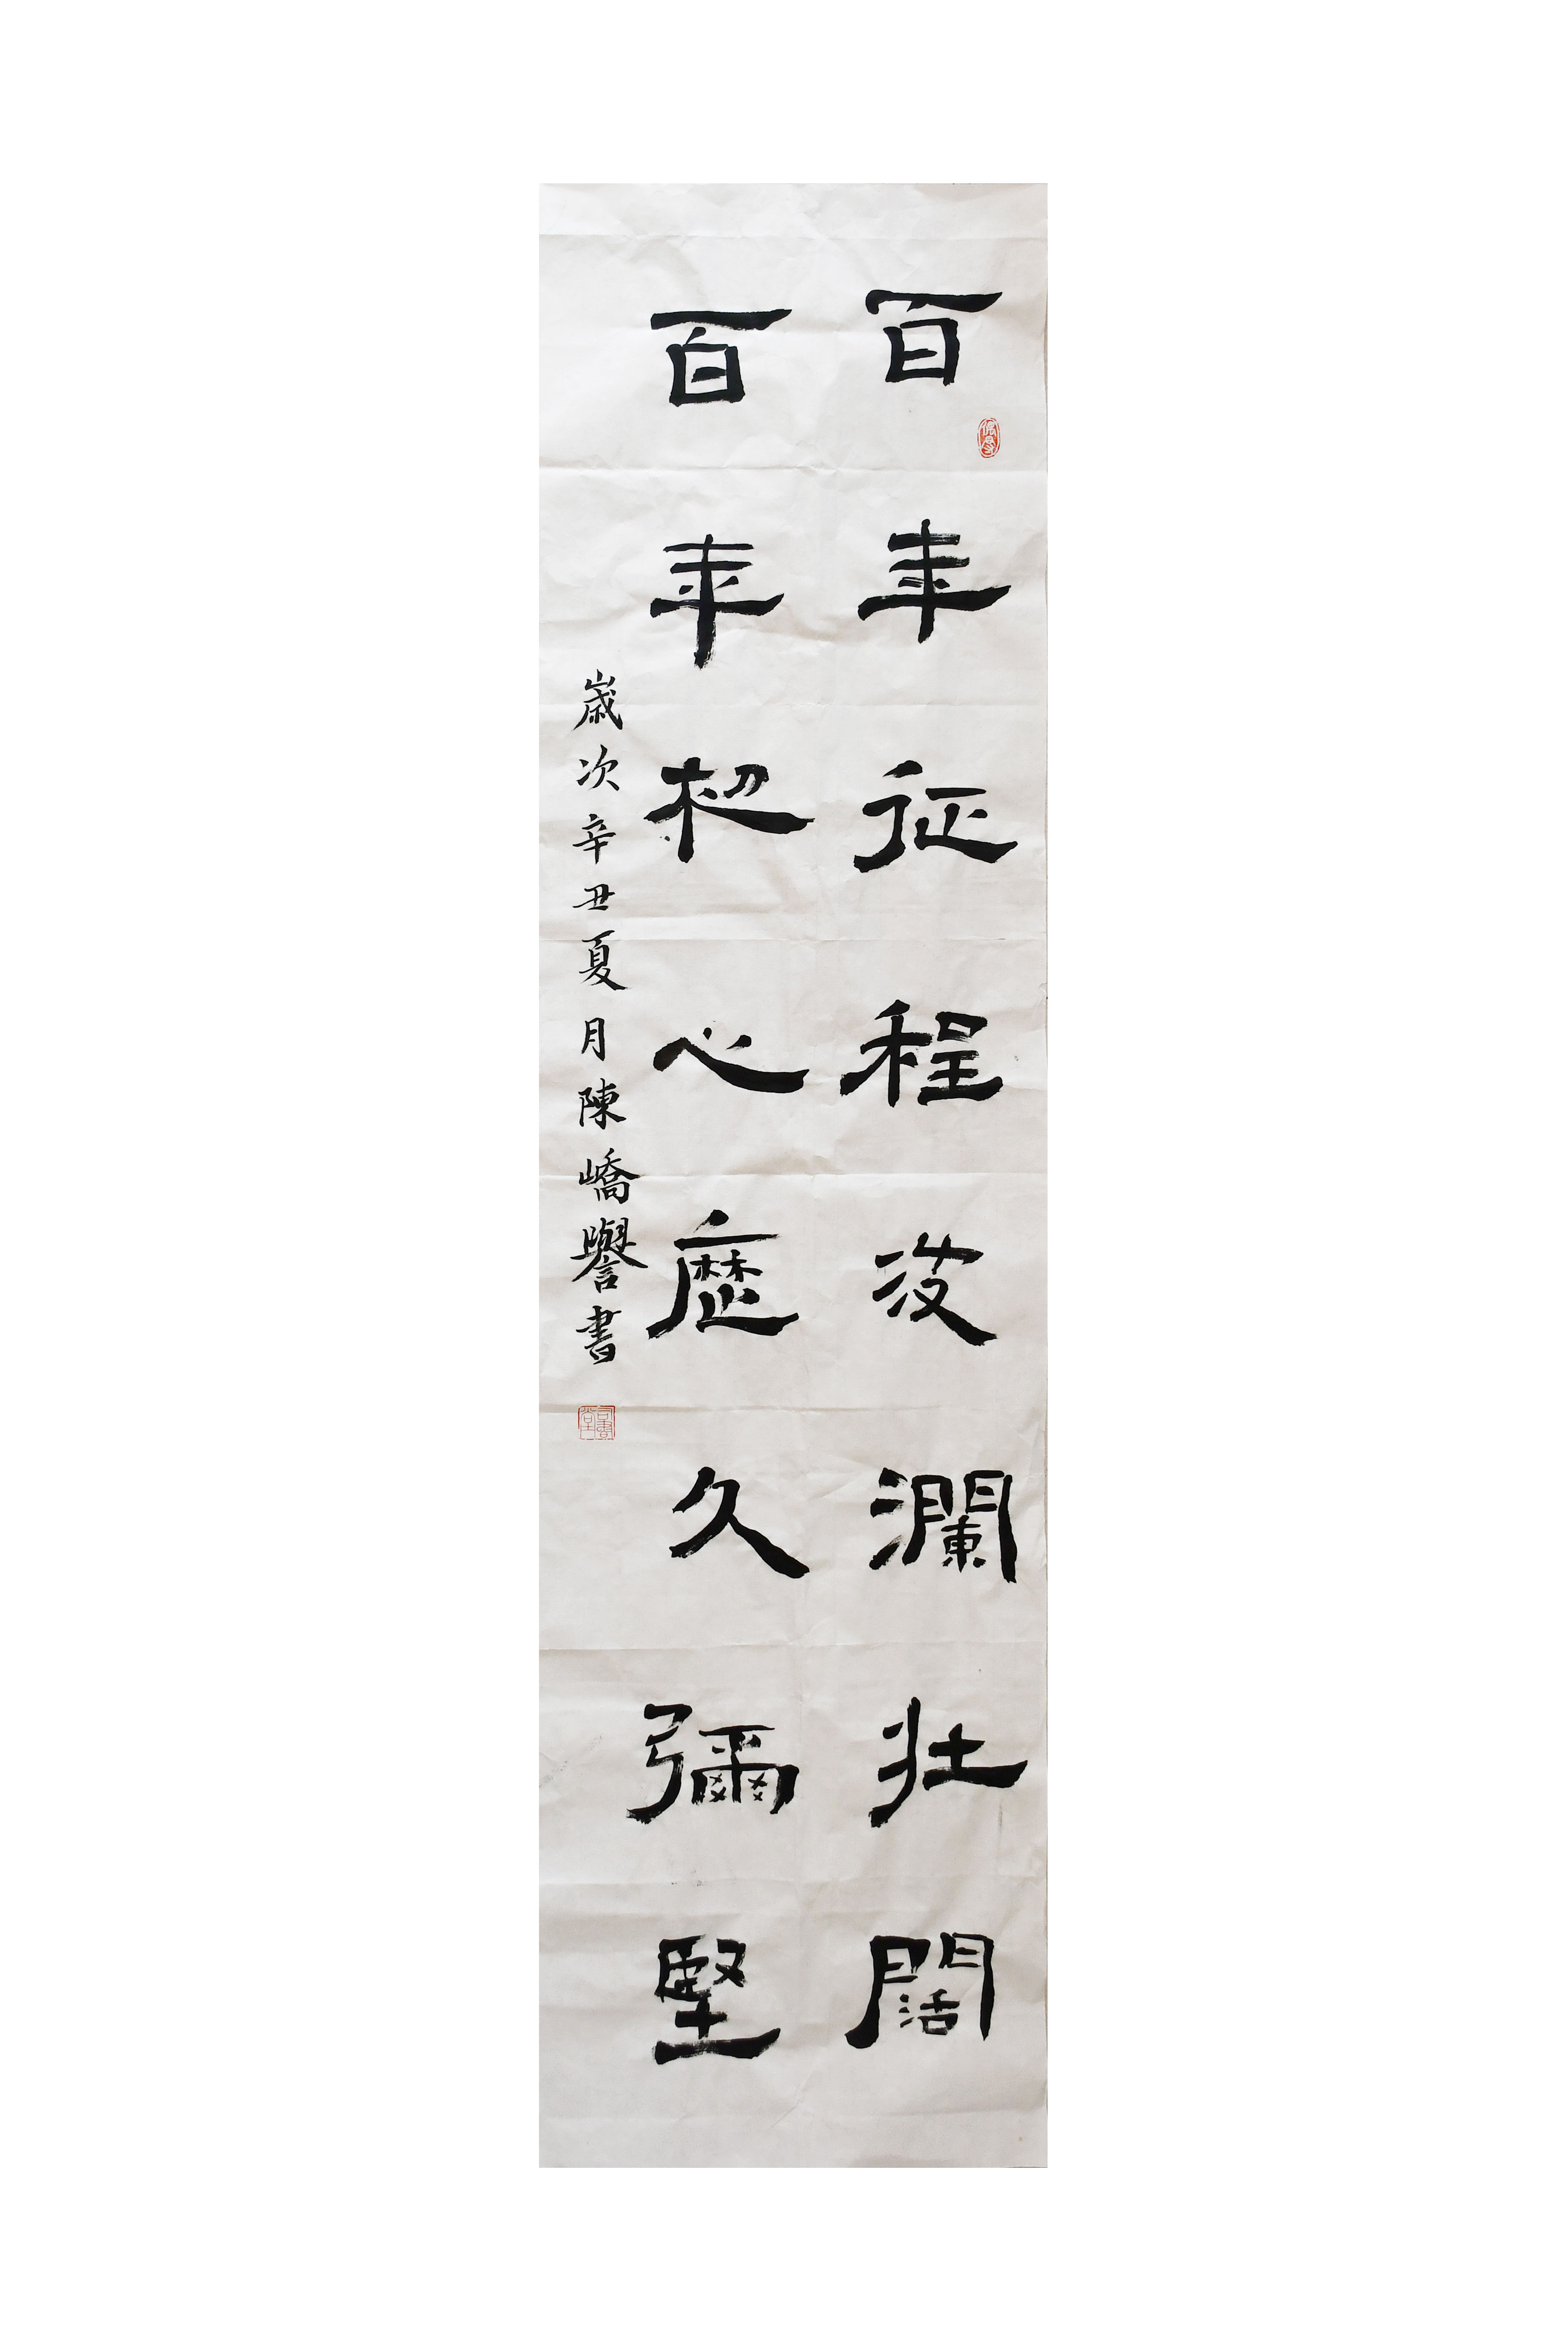 百年征程波瀾壯闊
百年初心歷久彌堅
歲次辛丑夏月陳嶠譽書